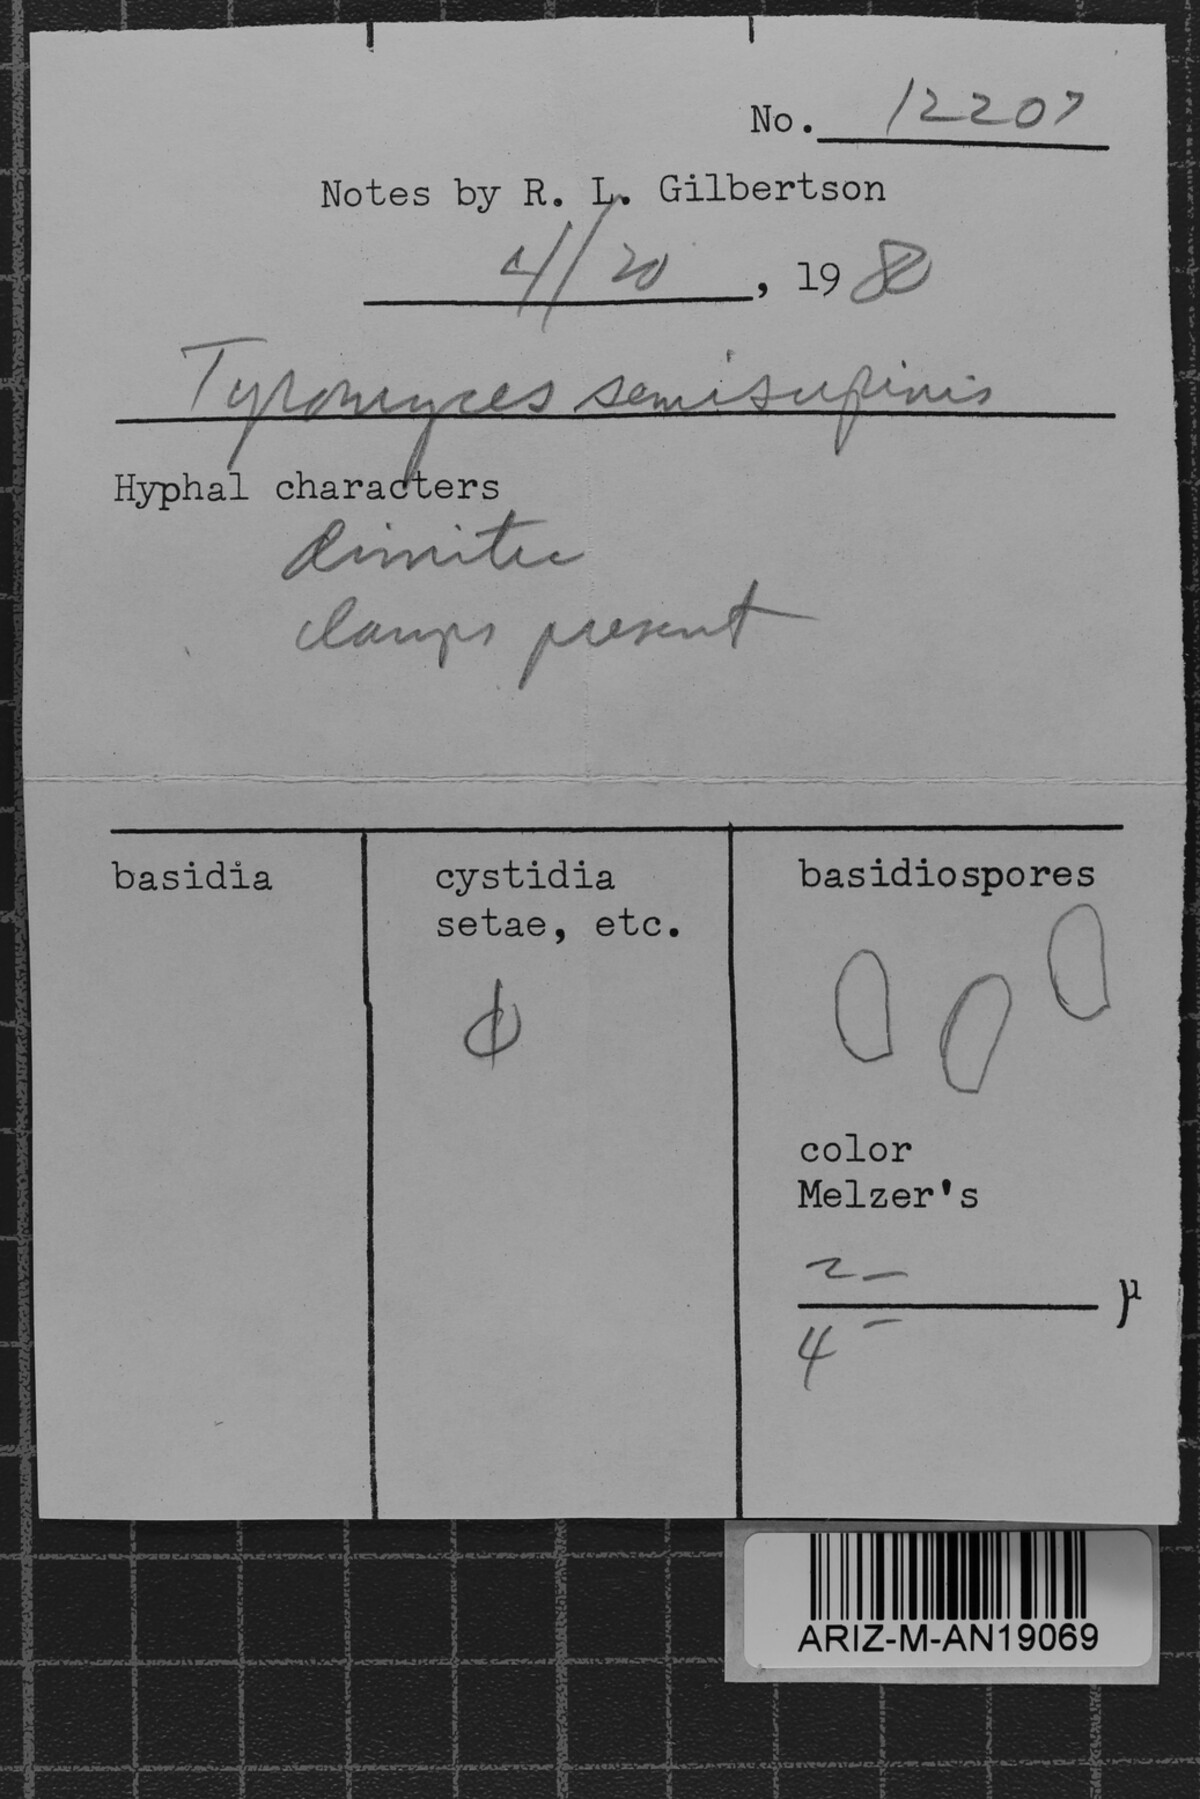 No. 12207
Notes by R. L. Gilbertson
4/20, 1980
Tyromyces semisupinis
Hyphal characters
dimitic
clamps present
basidia
cystidia
setae, etc.
φ
basidiospores
color
Melzer's
2 –
μ
4 –
ARIZ-M-AN19069